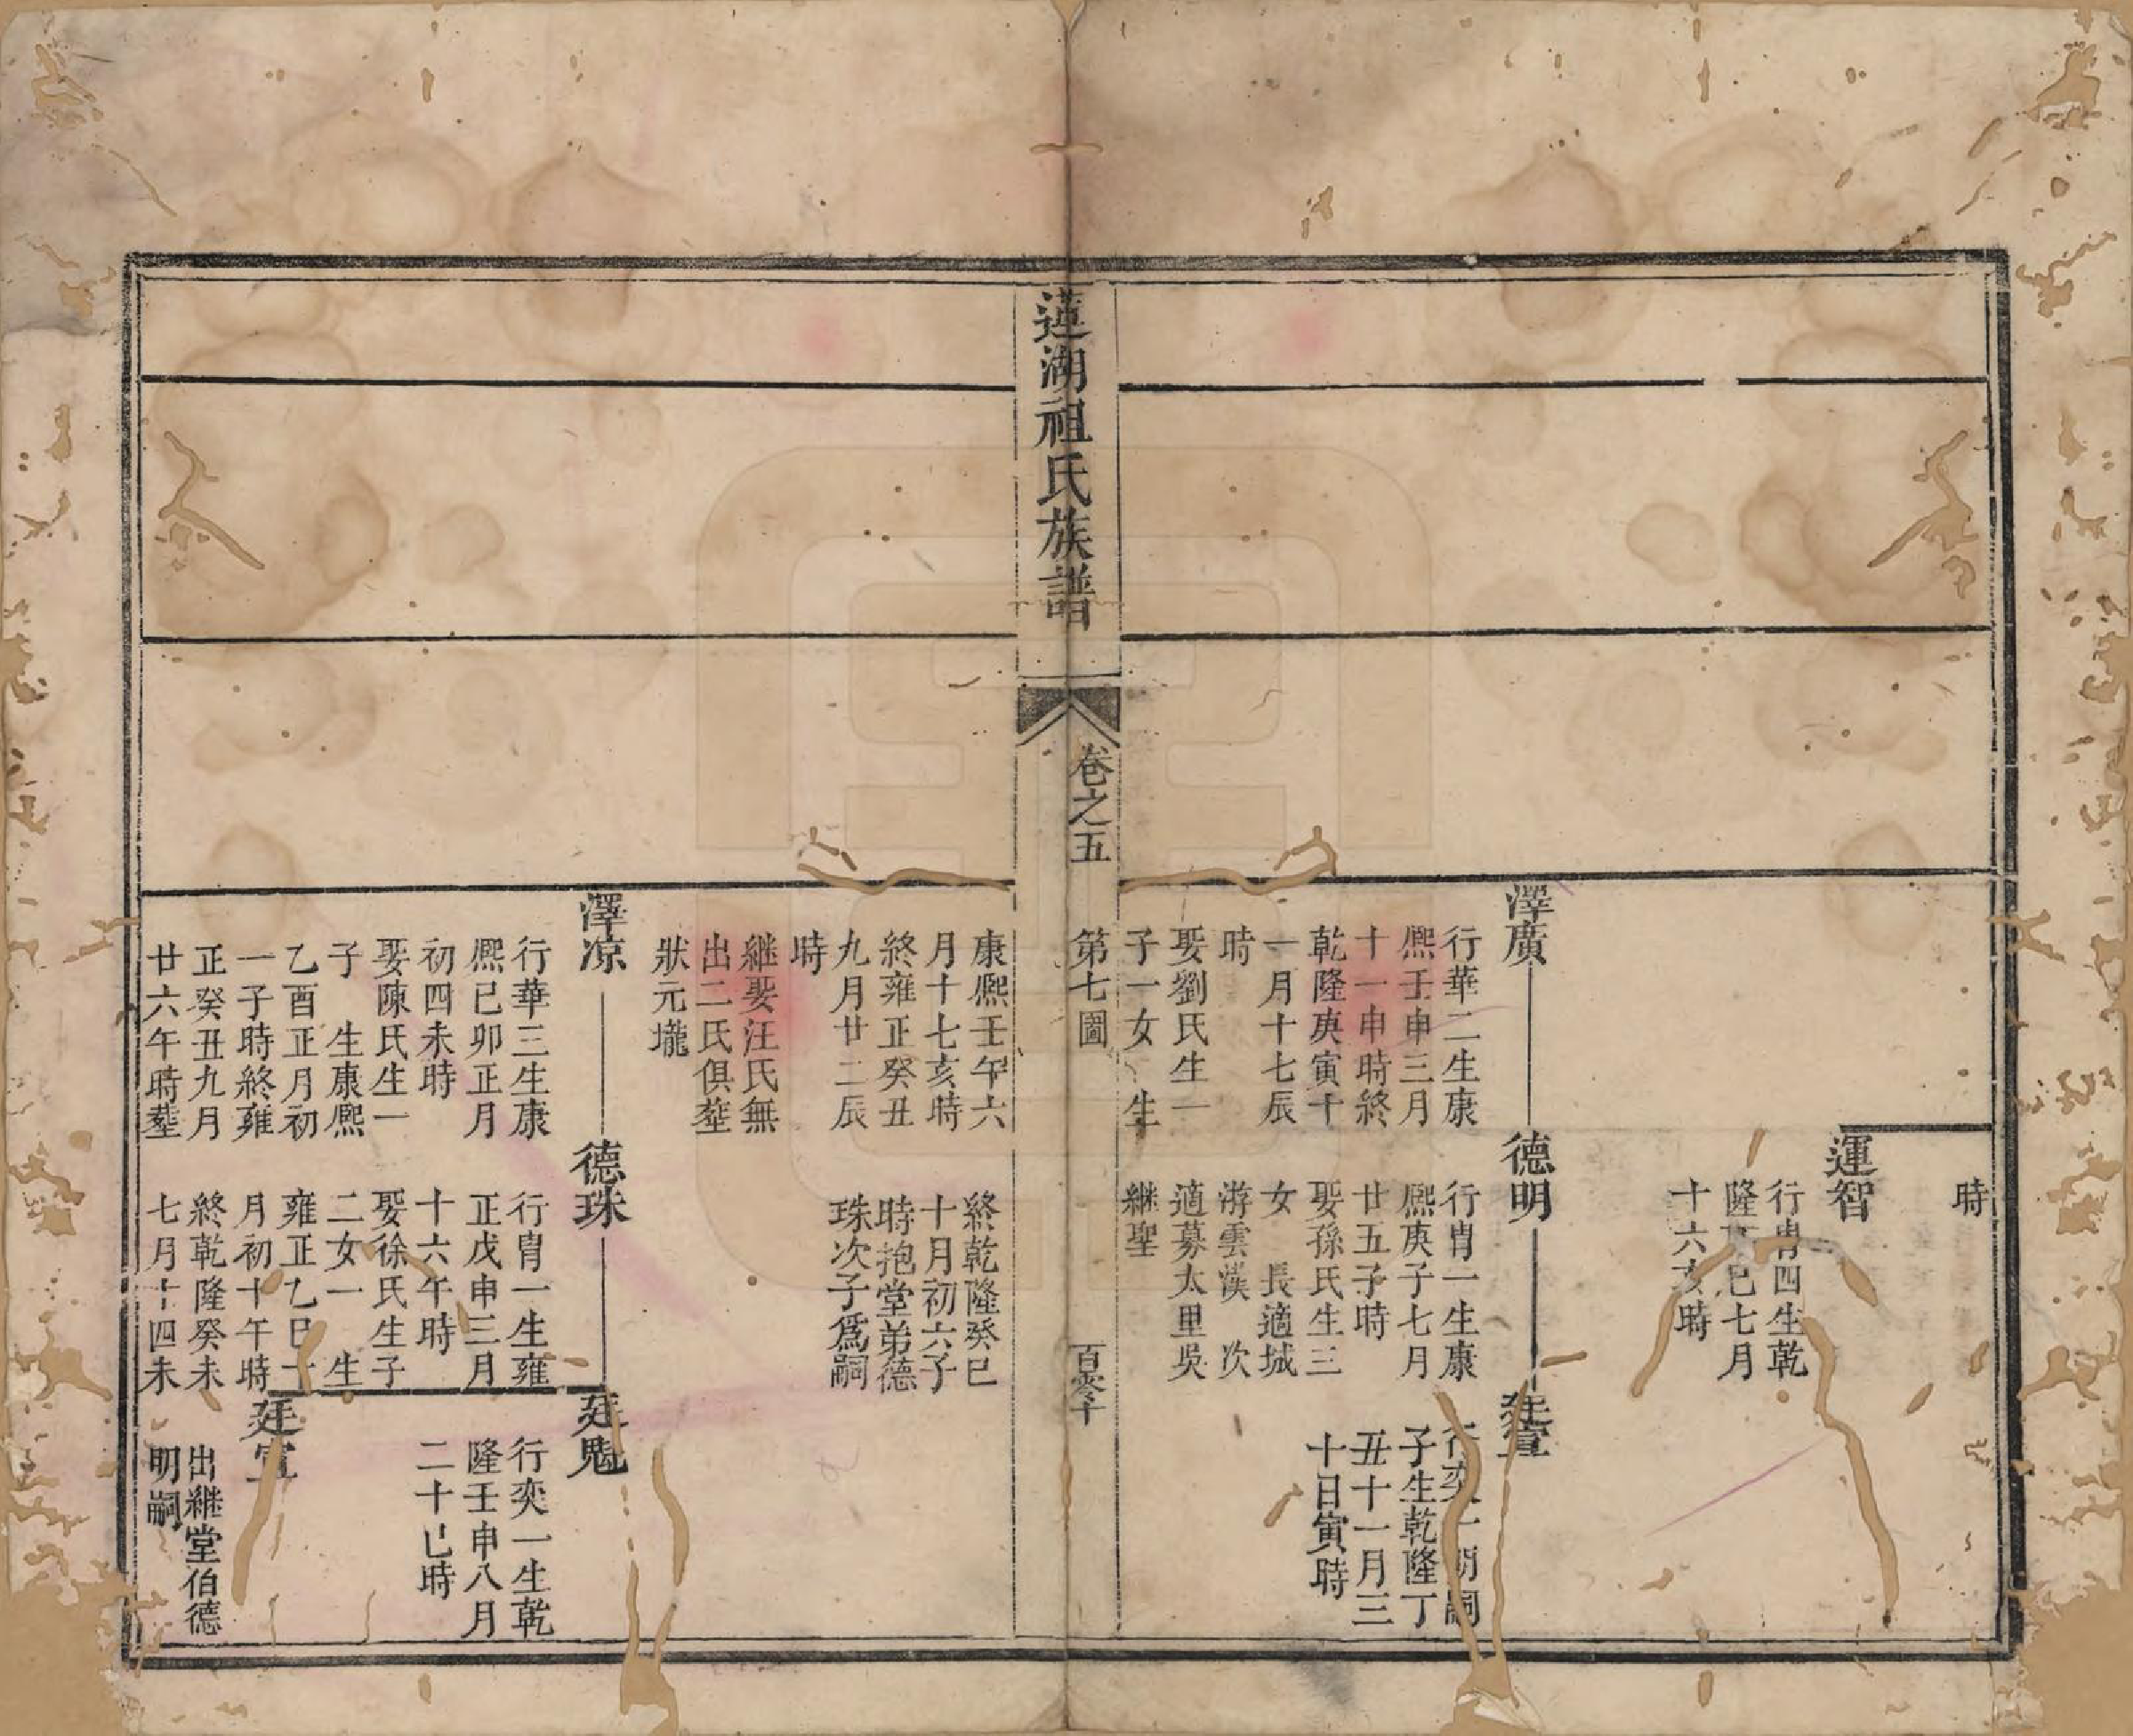 時
運智
行冑四生乾
隆 巳七月
十六亥時
澤廣
行華二生康
熈壬申三月
十一申時終
乾隆庚寅十
一月十七辰
時
娶劉氏生一
子一女 生
德明
行冑一生康
熈庚子七月
廿五子時
娶孫氏生三
女 長適城
游雲漢 次
適募太里吳
繼聖
廷宣
行奕一明嗣
子生乾隆丁
丑十一月三
十日寅時
蓮湖祖氏族譜
卷之五
第七圖
百零十
康熈壬午六
月十七亥時
終雍正癸丑
九月廿二辰
時
繼娶汪氏無
出二氏俱塟
狀元壠
終乾隆癸巳
十月初六子
時抱堂弟德
珠次子爲嗣
澤凉
行華三生康
熈己卯正月
初四未時
娶陳氏生一
子 生康熈
乙酉正月初
一子時終雍
正癸丑九月
廿六午時塟
德珠
行冑一生雍
正戊申三月
十六午時
娶徐氏生子
二女一 生
雍正乙巳十
月初十午時
終乾隆癸未
七月十四未
廷魁
行奕一生乾
隆壬申八月
二十巳時
廷宣
出繼堂伯德
明嗣